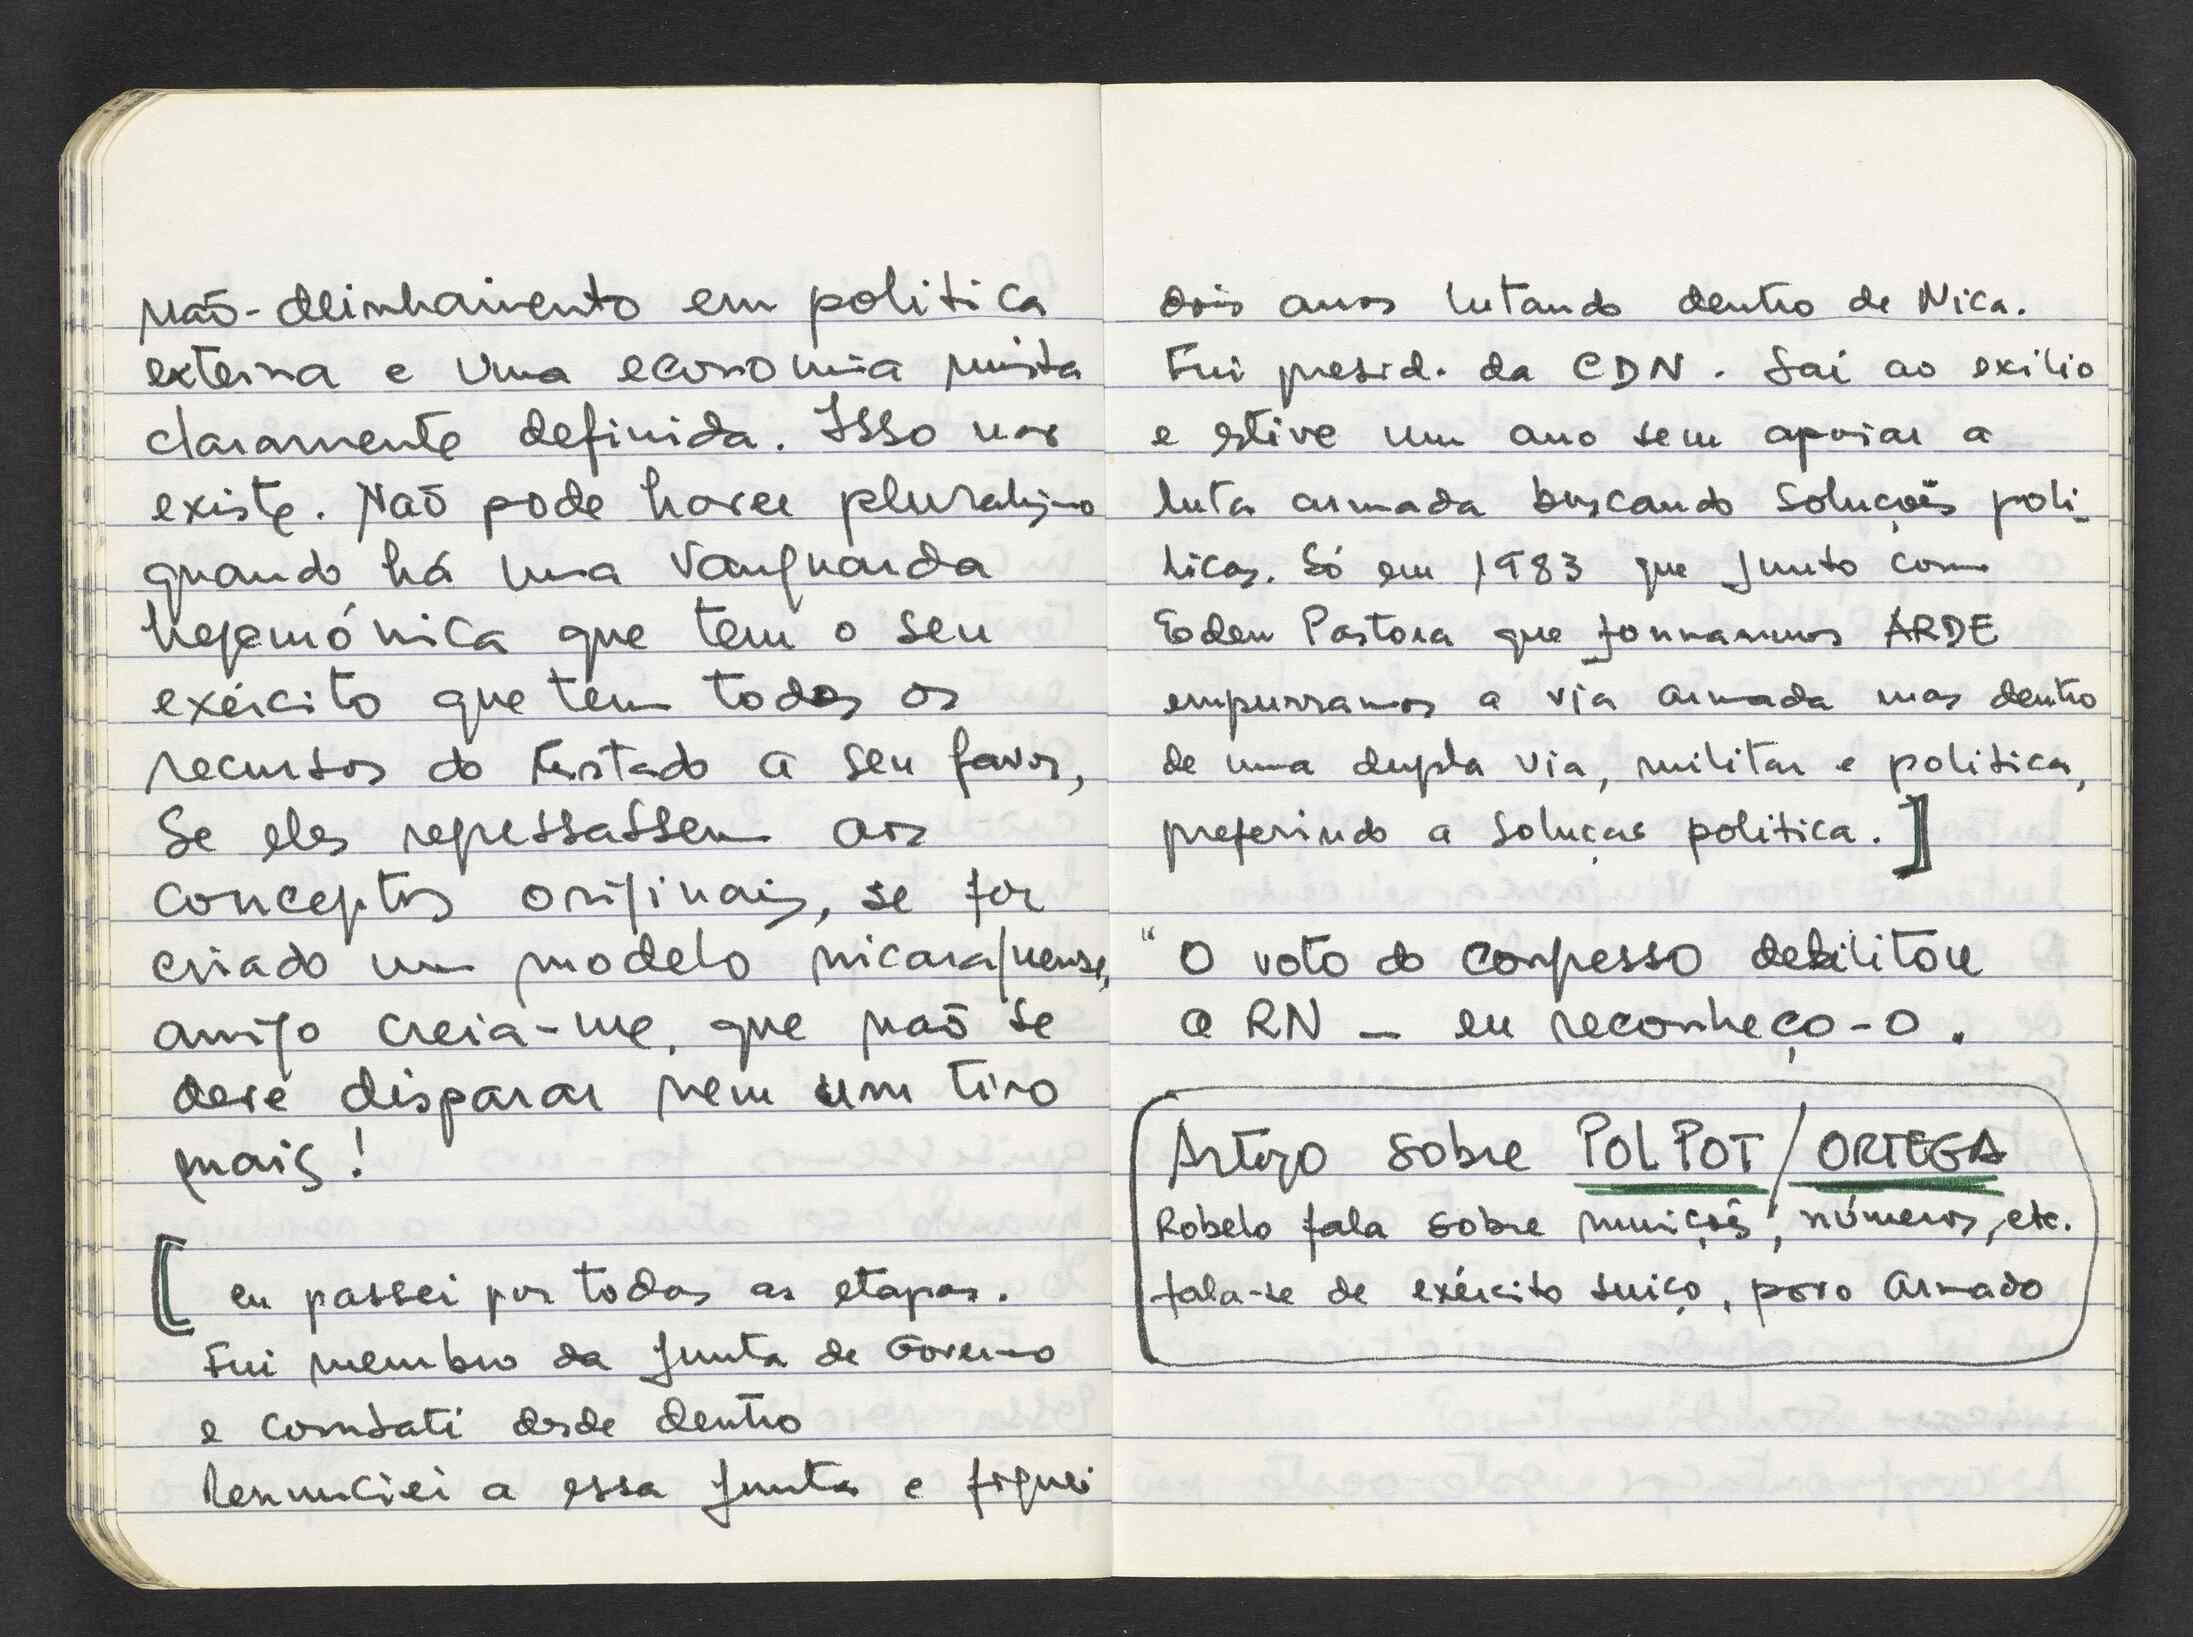 não-alinhamento em politica
externa e uma economia mista
claramente definida. Isso não
existe. Não pode haver pluralismo
quando há uma vanguarda
hegemónica que tem o seu
exército que tem todos os
recursos do Estado a seu favor,
Se eles regressassem aos
conceptos originais, se for
criado um modelo nicaraguense,
amigo creia-me, que não se
deve disparar nem um tiro
mais!
[ eu passei por todas as etapas.
Fui membro da Junta de Governo
e combati desde dentro
Renunciei a essa Junta e fiquei
dois anos lutando dentro de Nica.
Fui presid. da CDN. Saí ao exílio
e estive um ano sem apoiar a
luta armada buscando soluções poli-
ticas. Só em 1983 que junto com
Eden Pastora que formamos ARDE
empurramos a via armada mas dentro
de uma dupla via, militar e politica,
preferindo a solução politica. ]
" O voto do congresso debilitou
a RN - eu reconheço-o.
Artigo sobre POL POT / ORTEGA
Robelo fala sobre munições, números, etc.
fala-se de exército suiço, povo armado